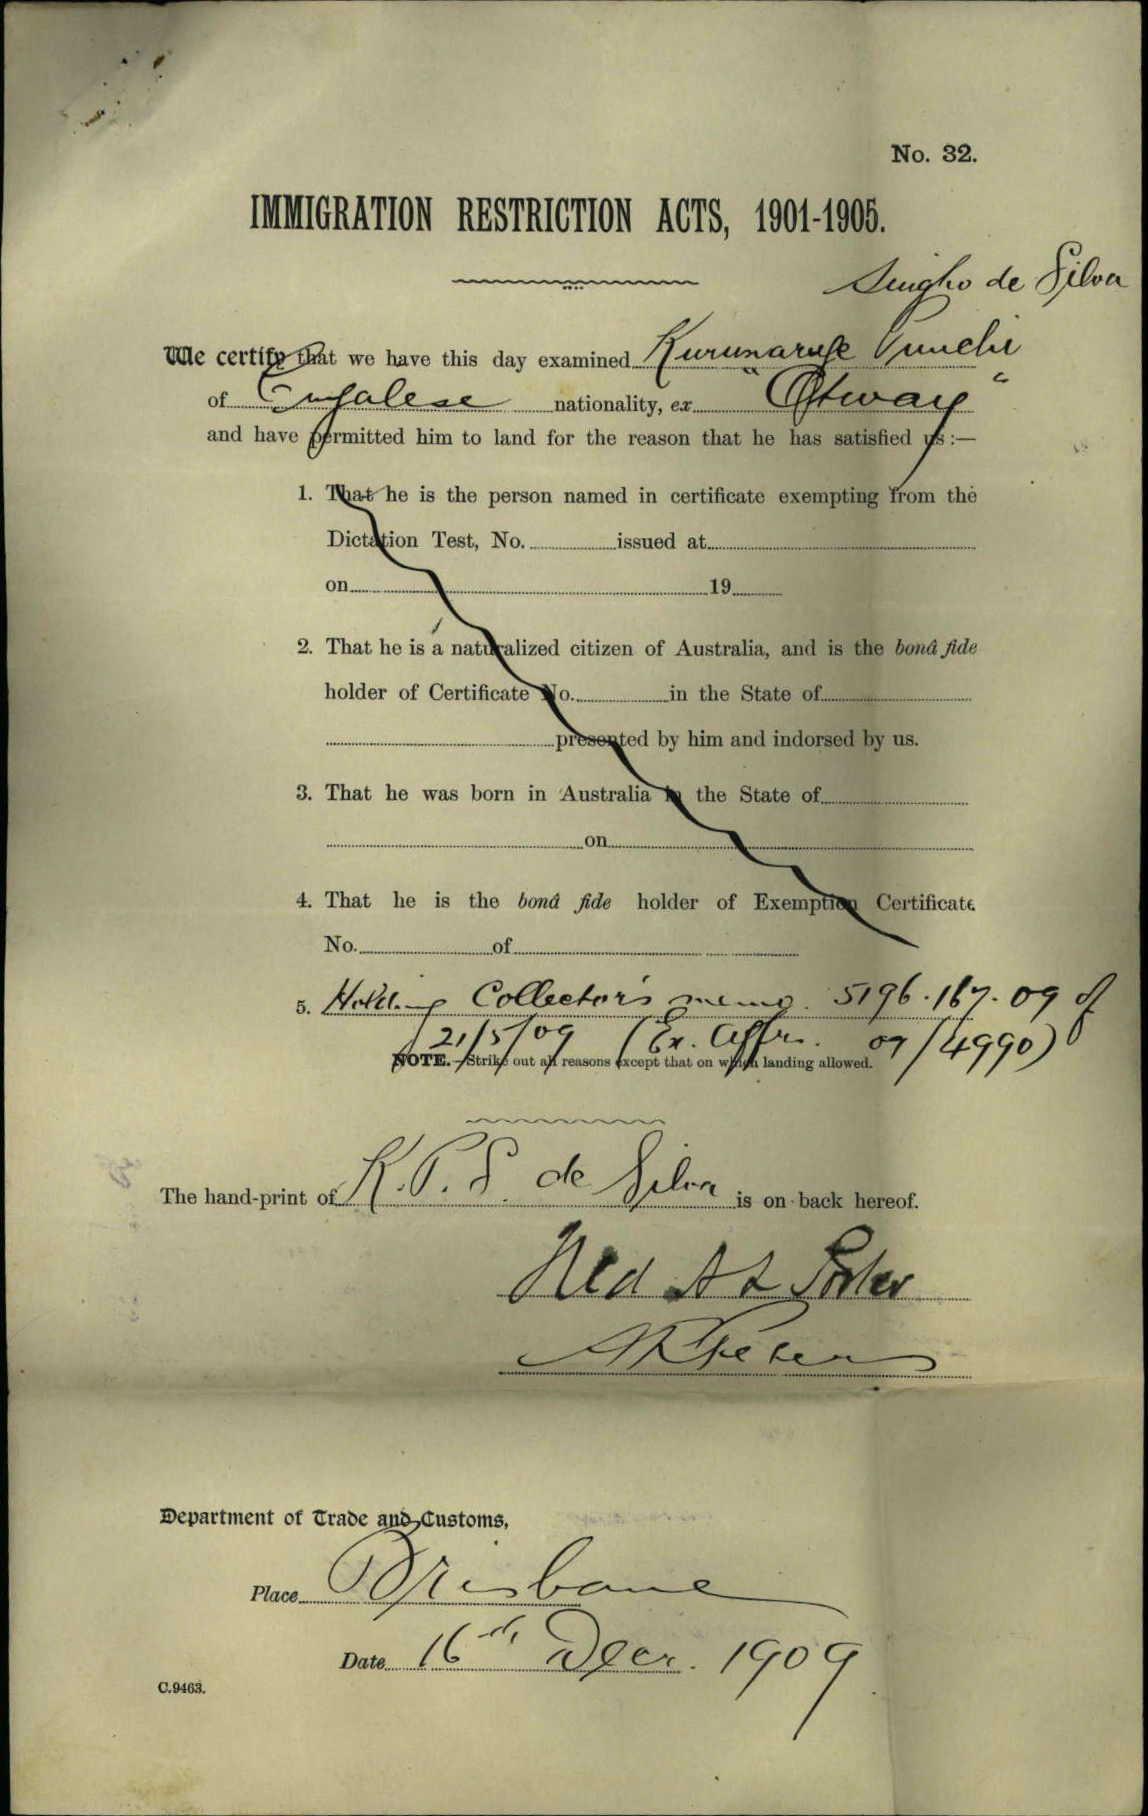 No. 32.
IMMIGRATION RESTRICTION ACTS, 1901-1905.
Singho de Silva
We certify that we have this day examined Kurunaruge Punchi
of Cingalese nationality, ex "Otway"
and have permitted him to land for the reason that he has satisfied us:—
1. That he is the person named in certificate exempting from the
Dictation Test, No. issued at
on 19
2. That he is a naturalized citizen of Australia, and is the bonâ fide
holder of Certificate No. in the State of
presented by him and indorsed by us.
3. That he was born in Australia in the State of
on
4. That he is the bonâ fide holder of Exemption Certificate
No. of
5. Holding Collector's memo. 5196.167.09 of
21/5/09 (Ex. Affrs. 09/4990)
NOTE.—Strike out all reasons except that on which landing allowed.
The hand-print of K. P. S. de Silva is on back hereof.
Department of Trade and Customs,
Place Brisbane
Date 16th Decr. 1909
C.9463.